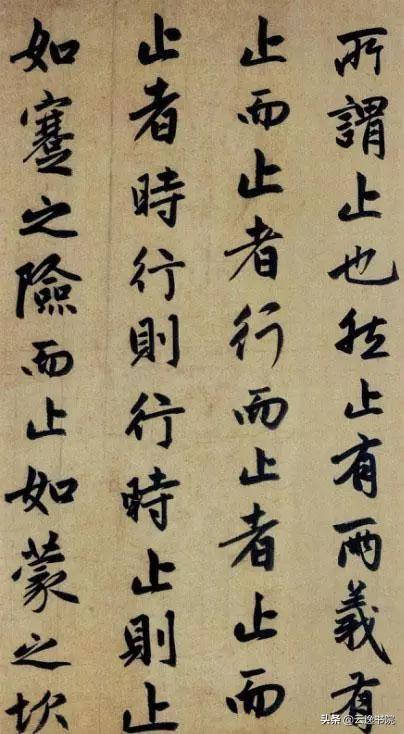 所謂止也然止有兩義有
止而止者行而止者止而
止者時行則行時止則止
如蹇之險而止如蒙之坎
头条@云逸书院